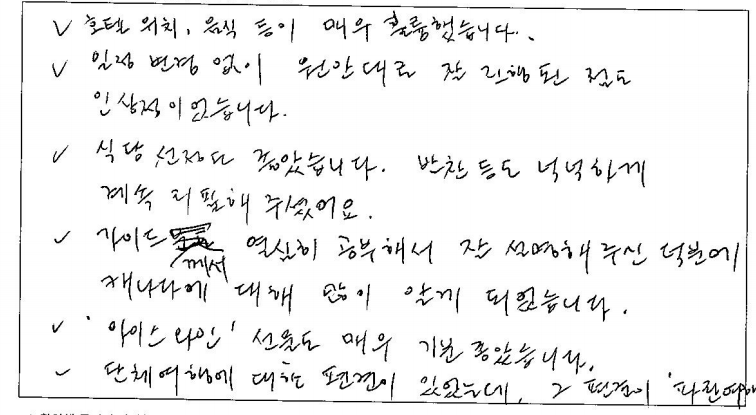 ✓ 호텔 위치, 음식 등이 매우 훌륭했습니다.
✓ 일정 변경 없이 원안대로 잘 진행된 점도
인상적이었습니다.
✓ 식당 선정도 좋았습니다. 반찬 등도 넉넉하게
계속 리필해 주셨어요.
✓ 가이드께서 열심히 공부해서 잘 설명해 주신 덕분에
캐나다에 대해 많이 알게 되었습니다.
✓ '아이스와인' 선물도 매우 기분 좋았습니다.
✓ 단체여행에 대한 편견이 있었는데, 그 편견이 '파란여행